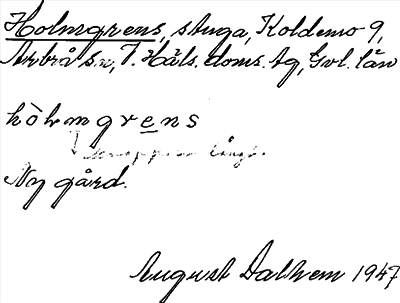 Holmgrens, stuga, Koldemo 9,
Arbrå sn, V. Häls. doms. tg, Gvl. län
hòlmgrens
långt.
Ny gård.
August Dalhem 1947